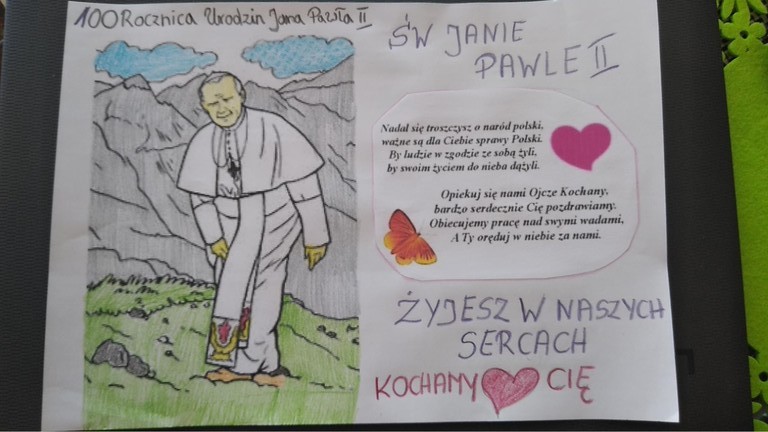 100 Rocznica Urodzin Jana Pawła II
ŚW JANIE
PAWLE II
Nadal się troszczysz o naród polski,
ważne są dla Ciebie sprawy Polski.
By ludzie w zgodzie ze sobą żyli,
by swoim życiem do nieba dążyli.
Opiekuj się nami Ojcze Kochany,
bardzo serdecznie Cię pozdrawiamy.
Obiecujemy pracę nad swymi wadami,
A Ty oręduj w niebie za nami.
ŻYJESZ W NASZYCH
SERCACH
KOCHAMY CIĘ